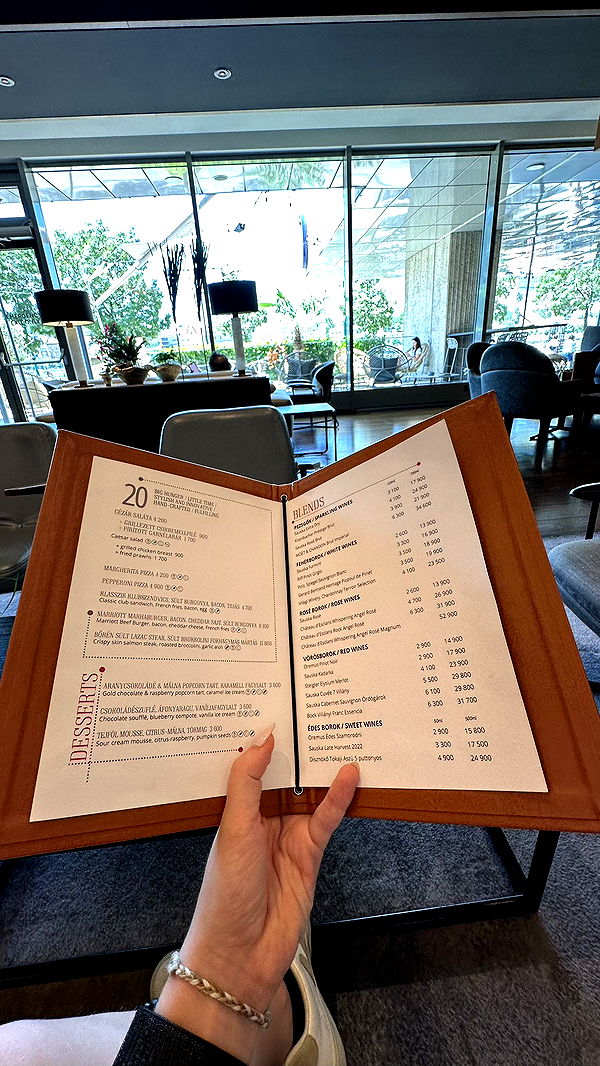 20
BIG HUNGER / LITTLE TIME /
STYLISH AND INNOVATIVE /
HAND-CRAFTED / FULFILLING
CÉZÁR SALÁTA 4 200
+ GRILLEZETT CSIRKEMELLFILÉ 900
+ PIRÍTOTT GARNÉLARÁK 1 700
Caesar salad
+ grilled chicken breast 900
+ fried prawns 1 700
MARGHERITA PIZZA 4 200
PEPPERONI PIZZA 4 900
KLASSZIK KLUBSZENDVICS, SÜLT BURGONYA, BACON, TOJÁS 4 700
Classic club sandwich, French fries, bacon, egg
MARRIOTT MARHABURGER, BACON, CHEDDAR SAJT, SÜLT BURGONYA
Marriott Beef Burger, bacon, cheddar cheese, French fries
BŐRÉN SÜLT LAZAC STEAK, SÜLT BROKKOLINI FOKHAGYMÁS MÁRTÁS 11 800
Crispy skin salmon steak, roasted broccolini, garlic aioli
DESSERTS
ARANYCSOKOLÁDÉ & MÁLNA POPCORN TART, KARAMELL FAGYLALT 3 600
Gold chocolate & raspberry popcorn tart, caramel ice cream
CSOKOLÁDÉSZUFLÉ, ÁFONYARAGU, VANÍLIAFAGYLALT 3 600
Chocolate soufflé, blueberry compote, vanilla ice cream
TEJFÖL MOUSSE, CITRUS-MÁLNA, TÖKMAG 3 600
Sour cream mousse, citrus-raspberry, pumpkin seeds
BLENDS
PEZSGŐK / SPARKLING WINES
Sauska Extra Dry 3 100 17 900
Kreinbacher Prestige Brut 4 100 24 900
Sauska Rosé Brut 3 900 21 900
MOËT & CHANDON Brut Impérial 6 300 34 600
FEHÉRBOROK / WHITE WINES
Sauska Furmint 2 600 13 900
Béres Pinot Grigio 3 300 16 900
Polic Spiegel Sauvignon Blanc 3 100 18 900
Gerard Bertrand Heritage Picpoul de Pinet 3 500 19 900
Villagi Winery, Chardonnay Terroir Selection 4 100 23 500
ROSÉ BOROK / ROSE WINES
Sauska Rosé 2 600 13 900
Château d'Esclans Rock Angel Rosé 4 700 26 900
Château d'Esclans Whispering Angel Rosé 6 300 31 900
Château d'Esclans Whispering Angel Rosé Magnum 52 900
VÖRÖSBOROK / RED WINES
Oremus Pinot Noir 2 900 14 900
Sauska Kadarka 2 900 17 900
Steigler Elysium Merlot 4 100 23 900
Sauska Cuvée 7 Villány 5 500 29 800
Sauska Cabernet Sauvignon Ördögárok 6 100 29 800
Bock Villányi Franc Essencia 6 300 31 700
ÉDES BOROK / SWEET WINES
Oremus Édes Szamorodni 2 900 15 800
Sauska Late Harvest 2022 3 300 17 500
Disznókő Tokaji Aszú 5 puttonyos 4 900 24 900